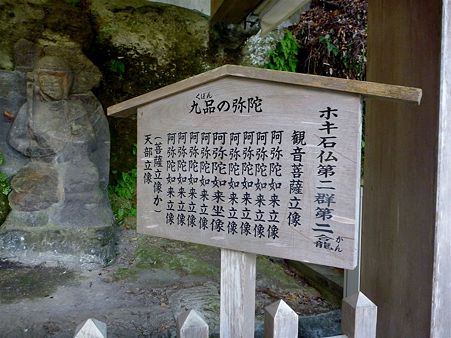 くほん
九品の弥陀
ホキ石仏第二群第二龕
がん
観音菩薩立像
阿弥陀如来立像
阿弥陀如来立像
阿弥陀如来立像
阿弥陀如来立像
阿弥陀如来坐像
阿弥陀如来立像
阿弥陀如来立像
阿弥陀如来立像
阿弥陀如来立像
（菩薩立像か）
天部立像